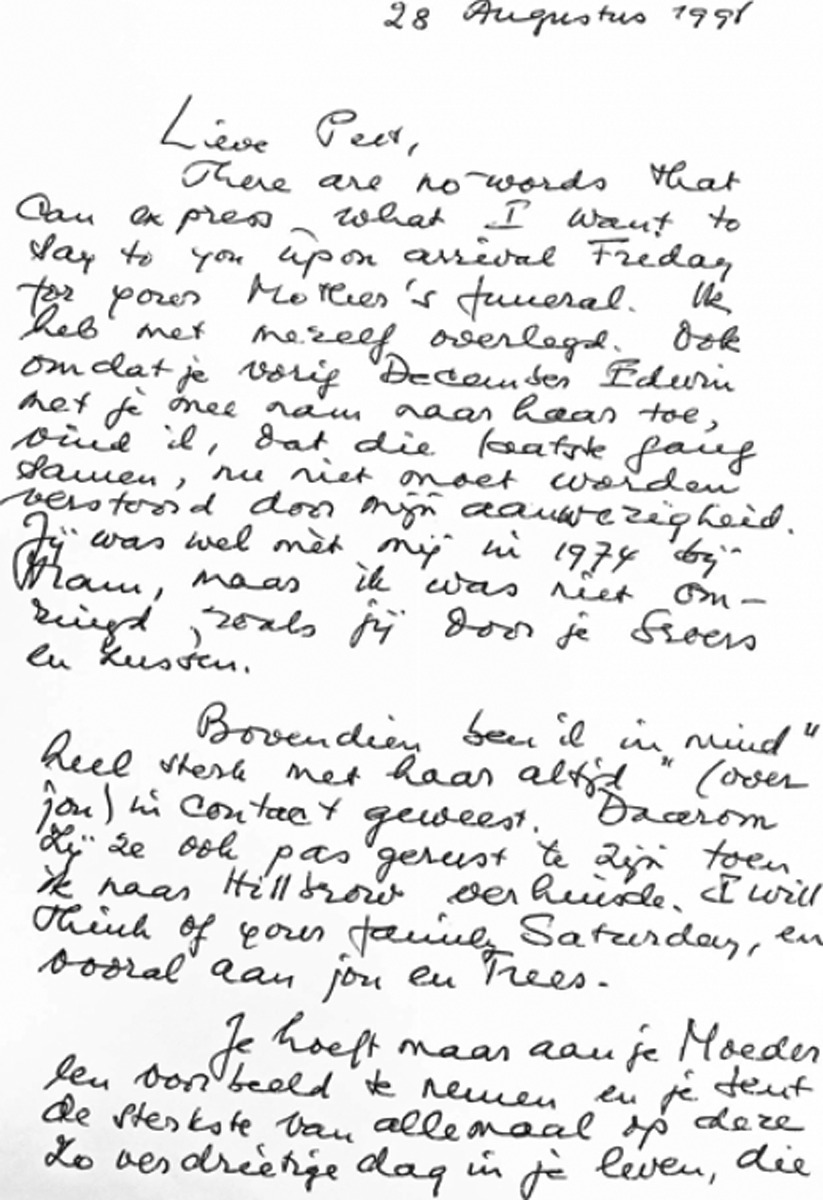 28 Augustus 1991
Lieve Peet,
There are no words that
can express what I want to
say to you upon arrival Friday
for your Mother's funeral. Ik
heb met mezelf overlegd. Ook
omdat je vorig December Edwin
met je mee nam naar haar toe,
vind ik, dat die laatste gang
samen, nu niet moet worden
verstoord door mijn aanwezigheid.
Jij was wel mèt mij in 1974 bij
Mam, maar ik was niet om-
ringd, zoals jij door je broers
en zussen.
Bovendien ben ik in mind"
heel sterk met haar altijd" (over
jou) in contact geweest. Daarom
zij ze ook pas gerust te zijn toen
ik naar Hillbrow verhuisde. I will
think of your family Saturday, en
vooral aan jou en Trees.
Je hoeft maar aan je Moeder
een voorbeeld te nemen en je bent
de sterkste van allemaal op deze
zo verdrietige dag in je leven, die